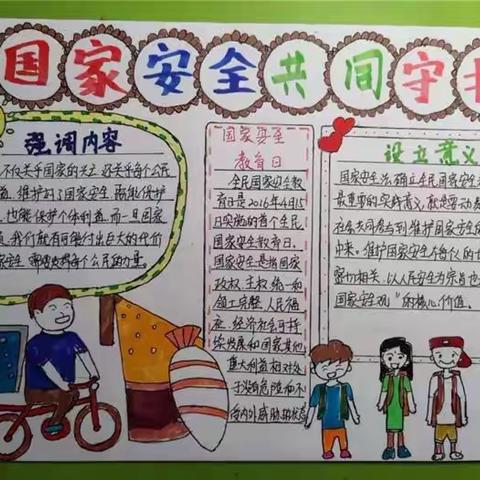 国家安全共同守护
强调内容
不仅关乎国家的关系还关乎每个公民
维护好了国家安全就能保护
也能保护个体利益而一旦国家
我们就有可能付出巨大的代价
安全需要发挥每个公民的力量。
国家安全
教育日
全民国家安全教
育日是2016年4月15
日实施的首个全民
国家安全教育日。
国家安全是指国家
政权、主权、统一和
领土完整、人民福
祉、经济社会可持
续发展和国家其他
重大利益相对处
于没有危险和不
受内外威胁的状态
设立意义
国家安全法确立全民国家安全
最重要的实践意义，就是要动员
在各大同参与到维护国家安全
中来。维护国家安全与每个人的
密切相关，以人民安全为宗旨也
国家安全观”的核心价值。